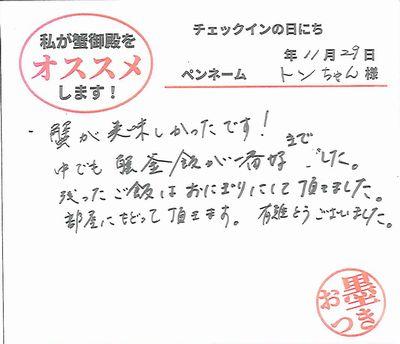 私が蟹御殿を
オススメ
します!
チェックインの日にち
年11月29日
ペンネーム トンちゃん 様
・蟹が美味しかったです!
中でも蟹釜飯が一番好きでした。
残ったご飯はおにぎりにして頂きました。
部屋にもどって頂きます。有難とうございました。
墨
おつき